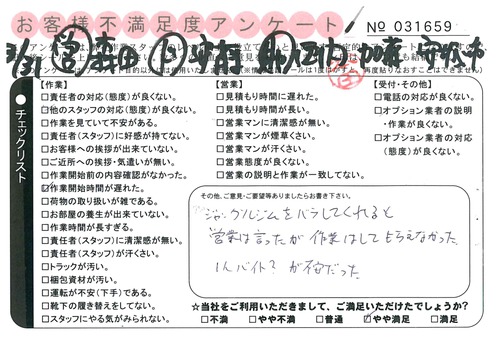 お客様不満足度アンケート
№ 031659
チェックリスト
【作業】
□責任者の対応(態度)が良くない。
□他のスタッフの対応(態度)が良くない。
□作業を見ていて不安がある。
□責任者(スタッフ)に好感が持てない。
□お客様への挨拶が出来ていない。
□ご近所への挨拶・気遣いが無い。
□作業開始前の内容確認がなかった。
☑作業開始時間が遅れた。
□荷物の取り扱いが雑である。
□お部屋の養生が出来ていない。
□作業時間が長すぎる。
□責任者(スタッフ)に清潔感が無い。
□責任者(スタッフ)が汗くさい。
□トラックが汚い。
□梱包資材が汚い。
□運転が不安(下手)である。
□靴下の履き替えをしてない。
□スタッフにやる気がみられない。
【営業】
□見積もり時間に遅れた。
□見積もり時間が長い。
□営業マンに清潔感が無い。
□営業マンが煙草くさい。
□営業マンが汗くさい。
□営業態度が良くない。
□営業の説明と作業が一致してない。
【受付・その他】
□電話の対応が良くない。
□オプション業者の説明
・作業が良くない。
□オプション業者の対応
(態度)が良くない。
その他、ご意見・ご要望等ありましたらお書き下さい。
ジャングルジムをバラしてくれると
営業は言ったが作業はしてもらえなかった。
1人バイト?が不安だった
☆当社をご利用いただきまして、ご満足いただけたでしょうか?
□不満 □やや不満 □普通 ☑やや満足 □満足